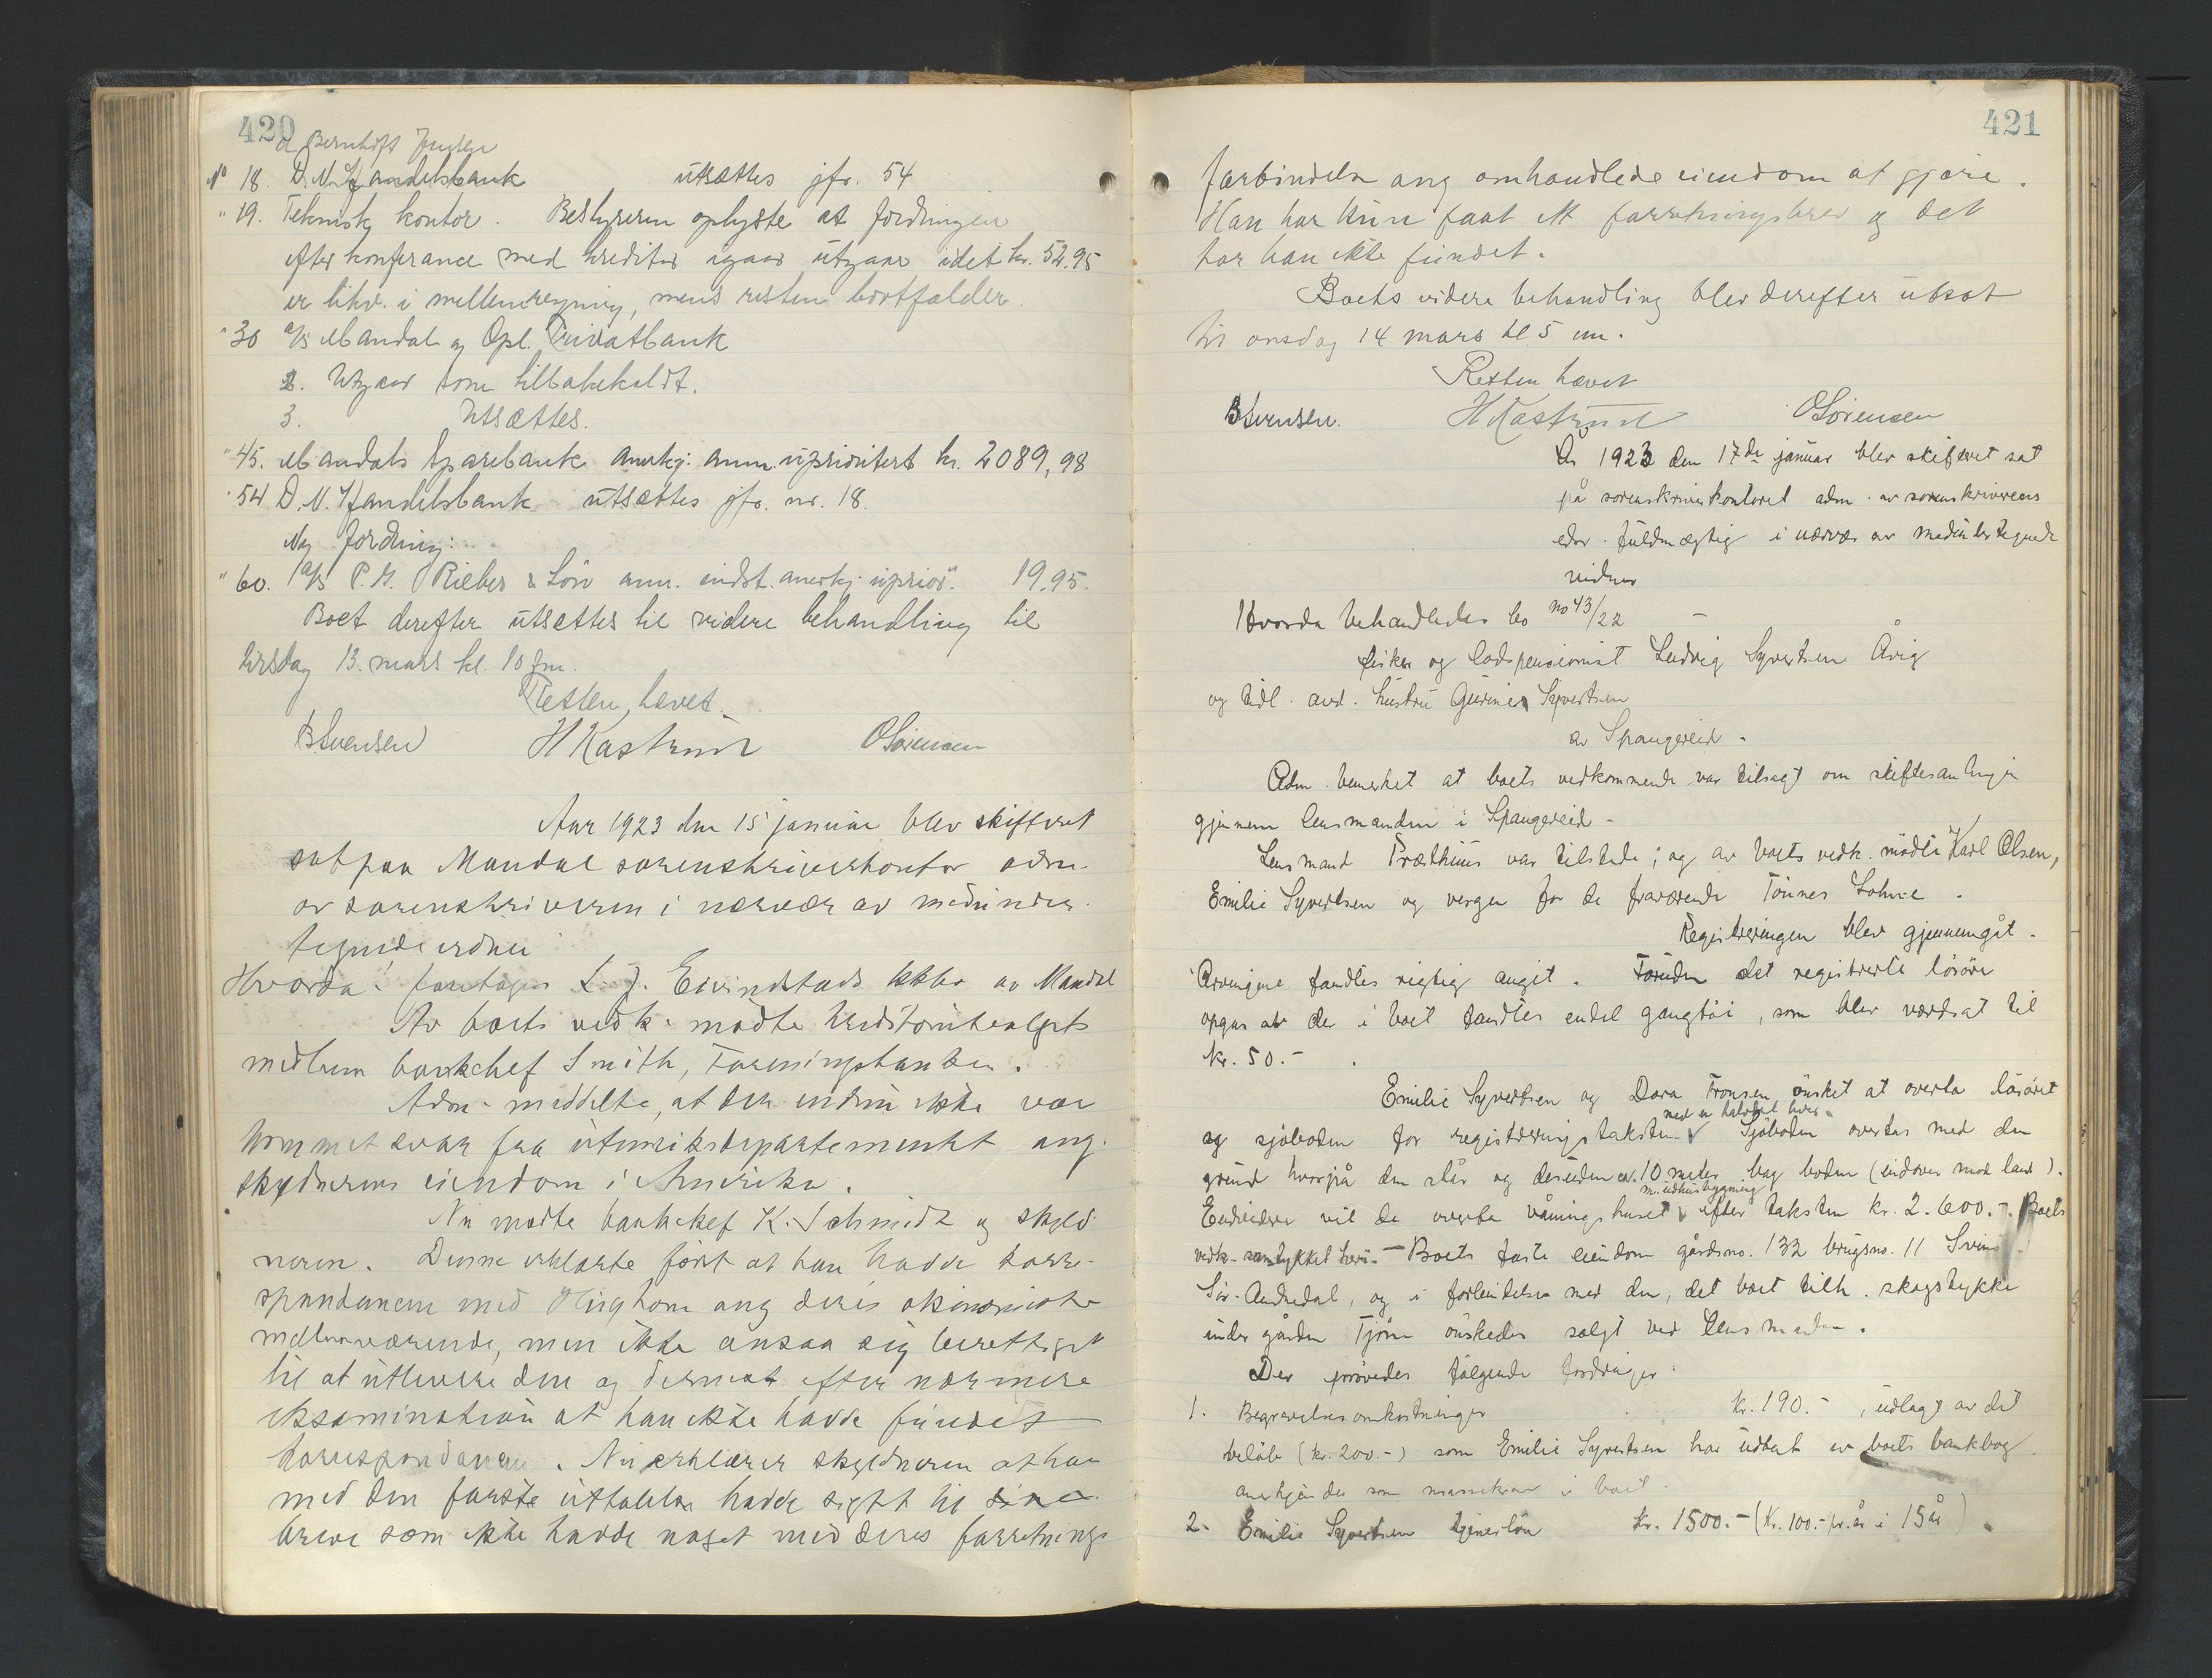 420
Bernhoft Jensen
No 18. D. N. Handelsbank utsættes jfr. 54
" 19. Teknisk kontor. Bestyreren oplyste at fordringen
efter konferance med kreditor igaar utgaar, idet kr. 52.95
er likv. i mellemregning, mens resten bortfalder.
" 30 A/S Mandal og Opl. Privatbank
2. Utgaar som tilbakekaldt.
3. Utsættes.
" 45. Mandals Sparebank anerkj. anm. uprioritert kr. 2089,98
" 54 D. N. Handelsbank utsættes jfr. nr. 18.
Ny fordring:
" 60. A/S P. G. Rieber & Søn anm. indst. anerkj. uprior. 19.95.
Boet derefter utsættes til videre behandling til
tirsdag 13. mars kl. 10 fm.
Retten hævet.
B Svensen H Kastrud O Sørensen
Aar 1923 den 15 januar blev skifteret
sat paa Mandal sorenskriverkontor adm.
av sorenskriveren i nærvær av medunder-
tegnede vidner
Hvorda: foretages L. J. Eivindstads kkbo av Mandal
Av boets vedk. mødte kreditorutvalgets
medlem bankchef Smith, Foreningsbanken.
Adm. meddelte, at der endnu ikke var
kommet svar fra utenriksdepartementet ang.
skyldnerens eiendom i Amerika.
Nu mødte bankchef K. Schmidt og skyld-
neren. Denne erklærte først at han hadde korre-
spondancen med ang deres økonomiske
mellemværende, men ikke ansaa sig berettiget
til at utlevere den og dernæst efter nærmere
eksamination at han ikke hadde fundet
korrespondancen. Nu erklærer skyldneren at han
med den første uttalelse hadde sigtet til sine
breve som ikke hadde noget med deres forretnings
421
forbindelse ang omhandlede eiendom at gjøre.
Han har kun faat et forretningsbrev og det
har han ikke fundet.
Boets videre behandling blev derefter utsat
til onsdag 14 mars kl 5 em.
Retten hævet
B Svensen. H Kastrud O Sørensen
År 1923 den 17de januar blev skifteret sat
på sorenskriverkontoret adm. av sorenskriverens
edsv. fuldmægtig i nærvær av medundertegnede
vidner
Hvorda behandledes bo no 43/22
fisker og lodspensionist Ludvig Syvertsen Åvig
og tidl. avd. hustru Gurine Syvertsen
av Spangereid.
Adm. bemerket at boets vedkommende var tilsagt om skiftesamlingen
gjennem lensmanden i Spangereid.
Lensmand Præsthus var tilstede; og av boets vedk. mødte Karl Olsen,
Emilie Syvertsen og vergen for de fraværende Tønnes Lohne.
Registreringen blev gjennemgåt.
Arvingene fandtes rigtig angit. Foruden det registrerte løsøre
opgas at der i boet fandtes endel gangtøi, som blev værdsat til
kr. 50.-
Emilie Syvertsen og Dora Tronsen ønsket at overta løsøret
og sjøboden for registreringstaksten med en halvdel hver. Sjøboden overtas med den
grund hvorpå den står og desuden ca. 10 meter bag boden (indover mod land).
Endvidere vil de overta våningshuset m. udhusbygning efter taksten kr. 2.600.-. Boets
vedk. samtykket heri. - Boets faste eiendom gårdsno. 132 brugsno. 11
Sør-Audnedal, og i forbindelse med den, det boet tilh. skogstykke
under gården Tjøm ønskedes solgt ved lensmanden.
Der prøvedes følgende fordringer:
1. Begravelsesomkostninger kr. 190.-, udlagt av det
beløb (kr. 200.-) som Emilie Syvertsen har udtat av boets bankbog.
anerkjendes som massekrav i boet.
2. Emilie Syvertsen tjenerløn kr. 1500.- (kr. 100.- pr. år i 15 år)